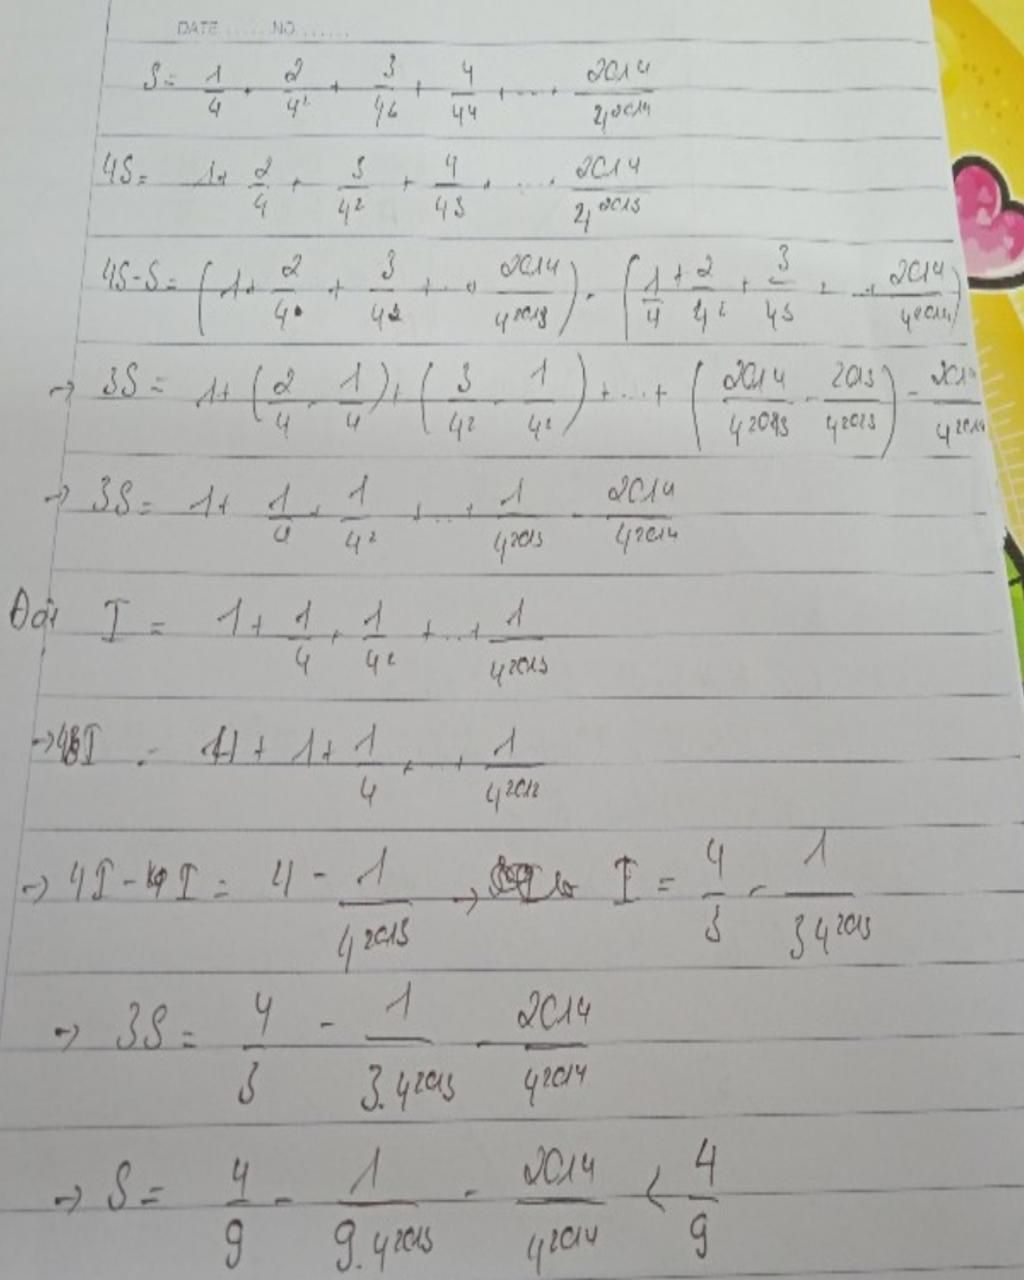 DATE ...... NO. ......
S = 1/4 + 2/4² + 3/4⁶ + 4/4⁴ + ... + 2014/4²⁰¹⁴
4S = 1 + 2/4 + 3/4² + 4/4³ + ... + 2014/4²⁰¹³
4S - S = (1 + 2/4 + 3/4² + ... + 2014/4²⁰¹³) - (1/4 + 2/4² + 3/4³ + ... + 2014/4²⁰¹⁴)
→ 3S = 1 + (2/4 - 1/4) + (3/4² - 1/4²) + ... + (2014/4²⁰¹³ - 2013/4²⁰¹³) - 2014/4²⁰¹⁴
→ 3S = 1 + 1/4 + 1/4² + ... + 1/4²⁰¹³ - 2014/4²⁰¹⁴
Đặt I = 1 + 1/4 + 1/4² + ... + 1/4²⁰¹³
→ 4I = 4 + 1 + 1/4 + ... + 1/4²⁰¹²
→ 4I - I = 4 - 1/4²⁰¹³ → I = 4/3 - 1/3 4²⁰¹³
→ 3S = 4/3 - 1/3.4²⁰¹³ - 2014/4²⁰¹⁴
→ S = 4/9 - 1/9.4²⁰¹³ - 2014/4²⁰¹⁴ < 4/9